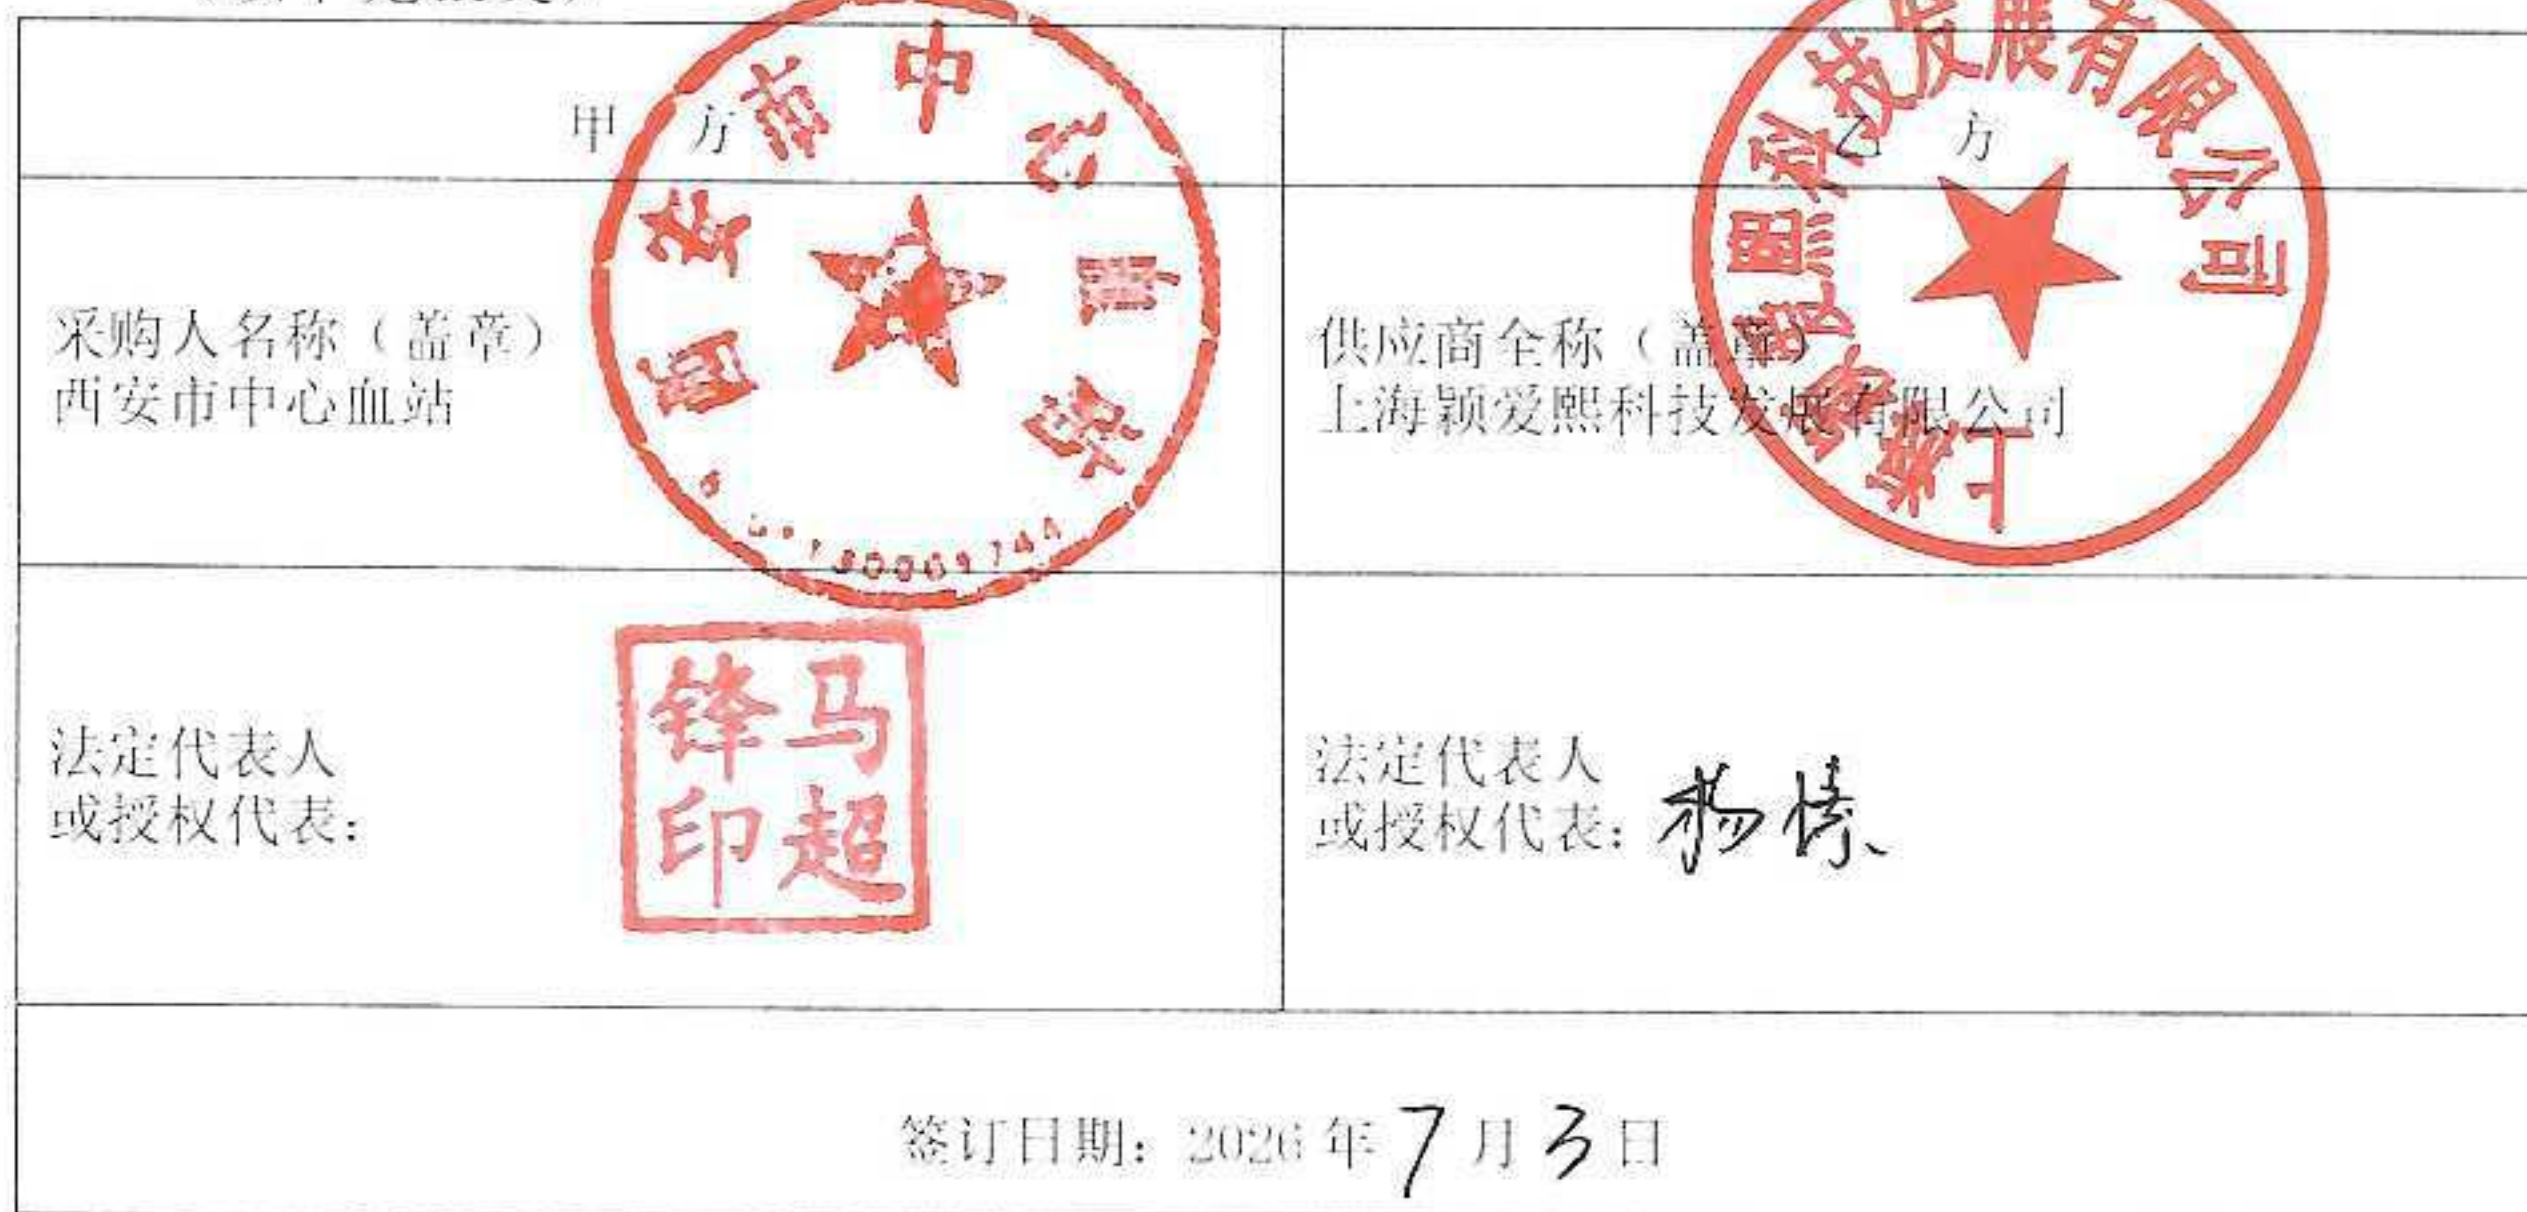 甲 方
乙 方
采购人名称（盖章）
西安市中心血站
供应商全称（盖章）
上海颖爱熙科技发展有限公司
西安市中心血站
上海颖爱熙科技发展有限公司
法定代表人
或授权代表：
马超锋印
法定代表人
或授权代表：杨
签订日期：2026年7月3日